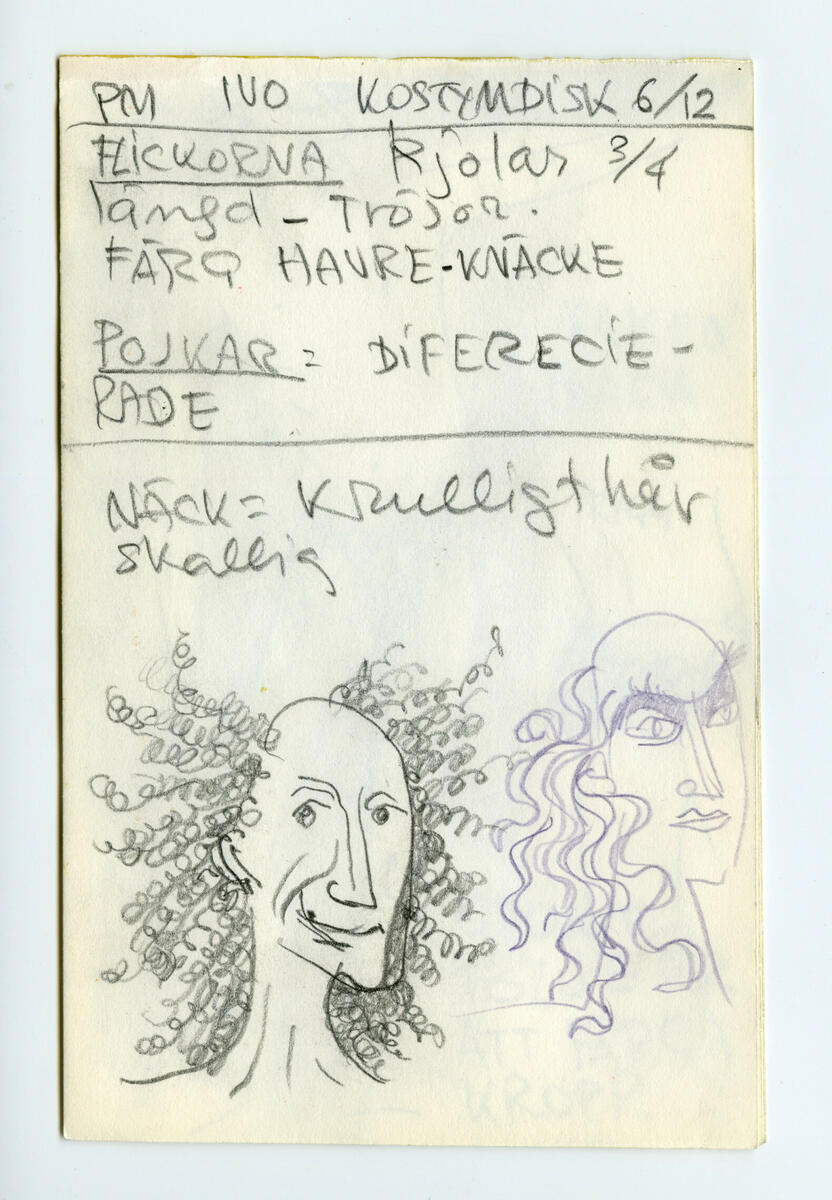 PM IVO KOSTYMDISK 6/12
FLICKORNA Kjolar 3/4
längd – Tröjor.
FÄRG HAVRE-KNÄCKE
POJKAR = DIFERECIE-
RADE
NÄCK = Krulligt hår
skallig
ATT
KROPP